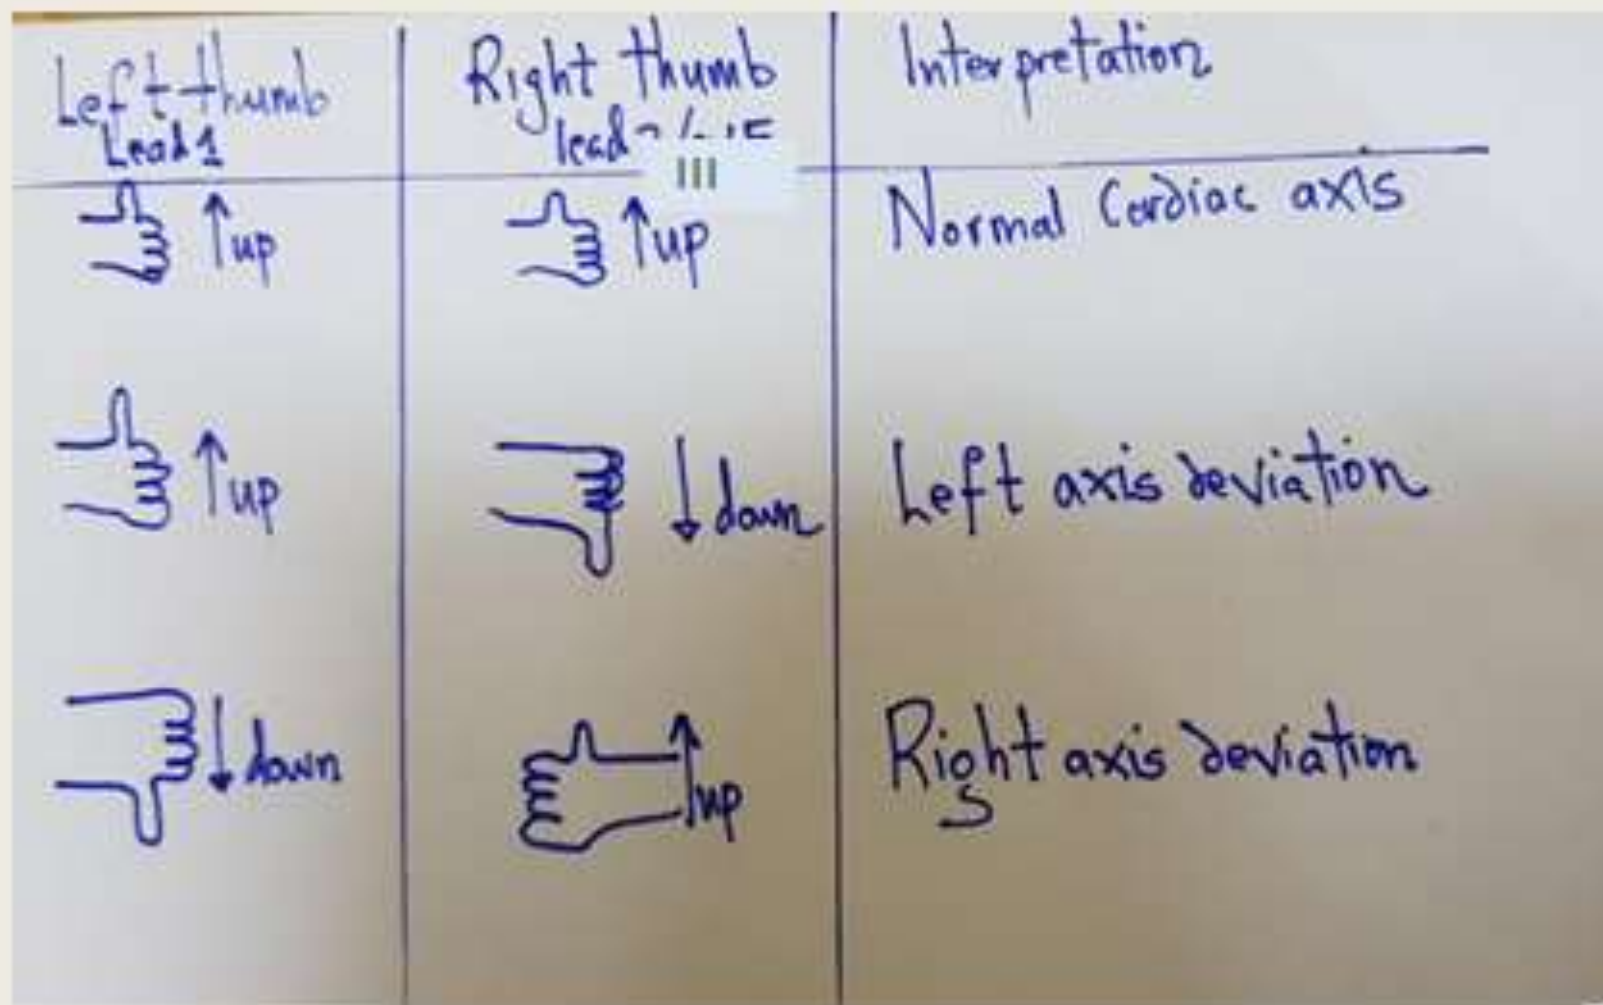 Left thumb
Lead 1
Right thumb
lead
III
Interpretation
up
up
Normal Cardiac axis
up
down
Left axis deviation
down
up
Right axis deviation